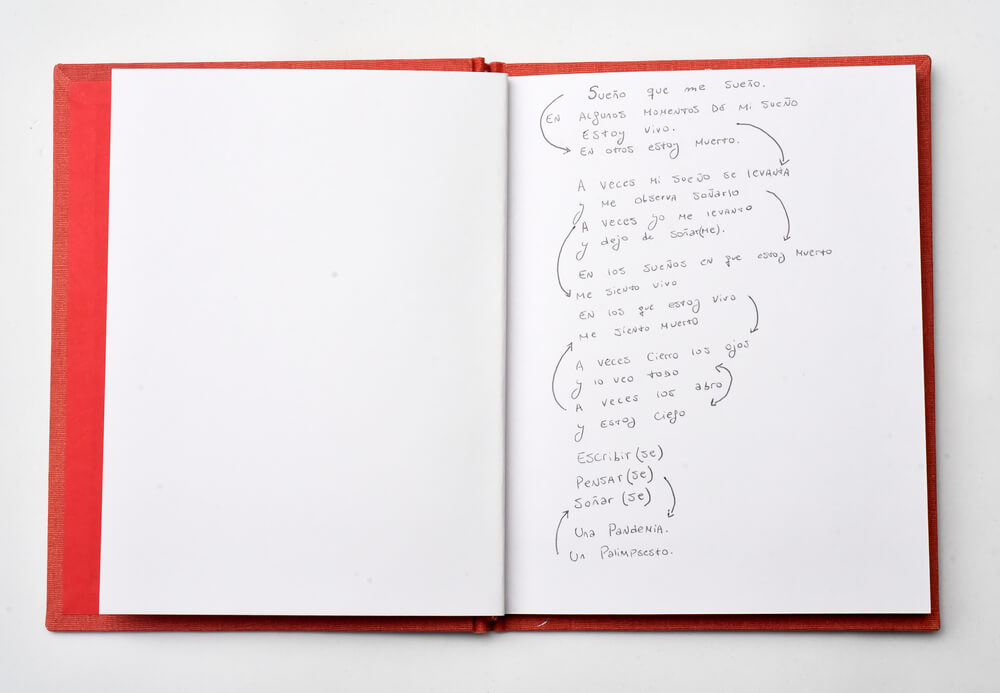 Sueño que me sueño.
En algunos momentos de mi sueño
estoy vivo.
En otros estoy muerto.
A veces mi sueño se levanta
y me observa soñarlo
A veces yo me levanto
y dejo de soñar(me).
En los sueños en que estoy muerto
me siento vivo
En los que estoy vivo
me siento muerto
A veces cierro los ojos
y lo veo todo
A veces los abro
y estoy ciego
Escribir(se)
Pensar(se)
Soñar(se)
Una Pandemia.
Un Palimpsesto.